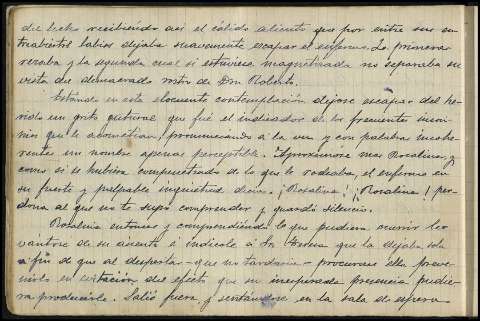 del lecho recibiendo así el cálido aliento que por entre sus en
treabiertos labios dejaba suavemente escapar el enfermo. La primera
rezaba y la segunda cual si estuviese magnetizada no separaba su
vista del demacrado rostro de Don Roberto.
Estando en esta elocuente contemplación dejose escapar del he
rido un grito gutural que fué el indicador de los frecuentes insom
nios que le acometían, pronunciando a la vez y con palabra incohe
rentes un nombre apenas perceptible. Aproximose mas Rosalina, y
como si se hubiera compenetrado de lo que le rodeaba, el enfermo en
su fuerte y palpable inquietud decía. ¡Rosalina! ¡Rosalina! per
dona al que no te supo comprender y guardó silencio.
Rosalina entonces y comprendiendo lo que pudiera ocurrir le
vantose de su asiento é indicole á Sor que la dejaba sola
á fin de que al despertar - que no tardaría - procurase ella preve
nirlo en evitación del efecto que su inesperada presencia pudie
ra producirle. Salió fuera, y sentándose en la sala de espera